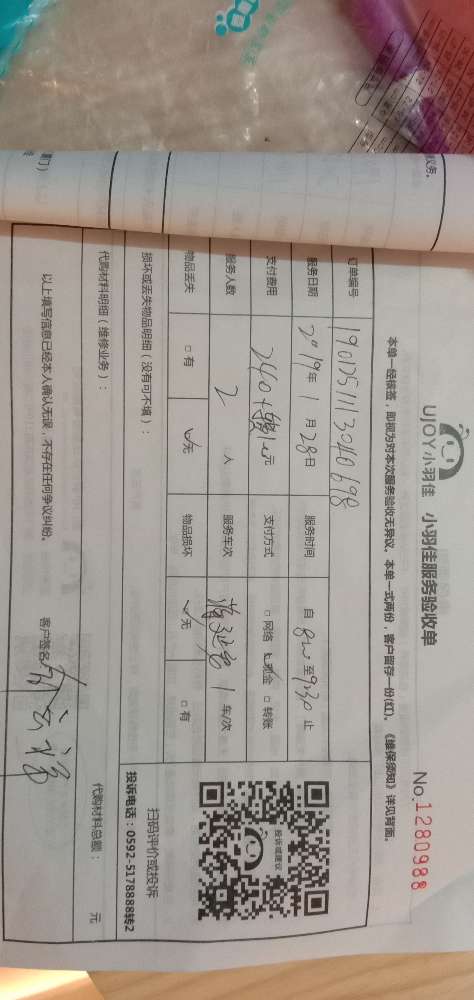 UJOY小羽佳 小羽佳服务验收单
No.1280988
本单一经核签，即视为对本次服务验收无异议。本单一式两份，客户留存一份(红)。《维保须知》详见背面。
订单编号 1901251113040698
服务日期 2019年1月28日 服务时间 自 8:00 至 9:30 止
支付费用 240+ 元 支付方式 □网络 ☑现金 □转账
服务人数 2 人 服务车次 1 车/次
物品丢失 □有 ☑无 物品损坏 ☑无 □有
损坏或丢失物品明细（没有可不填）：
代购材料明细（维修业务）：
代购材料总额： 元
以上填写信息已经本人确认无误，不存在任何争议纠纷。
客户签名
投诉或建议
扫码评价或投诉
投诉电话：0592-5178888转2